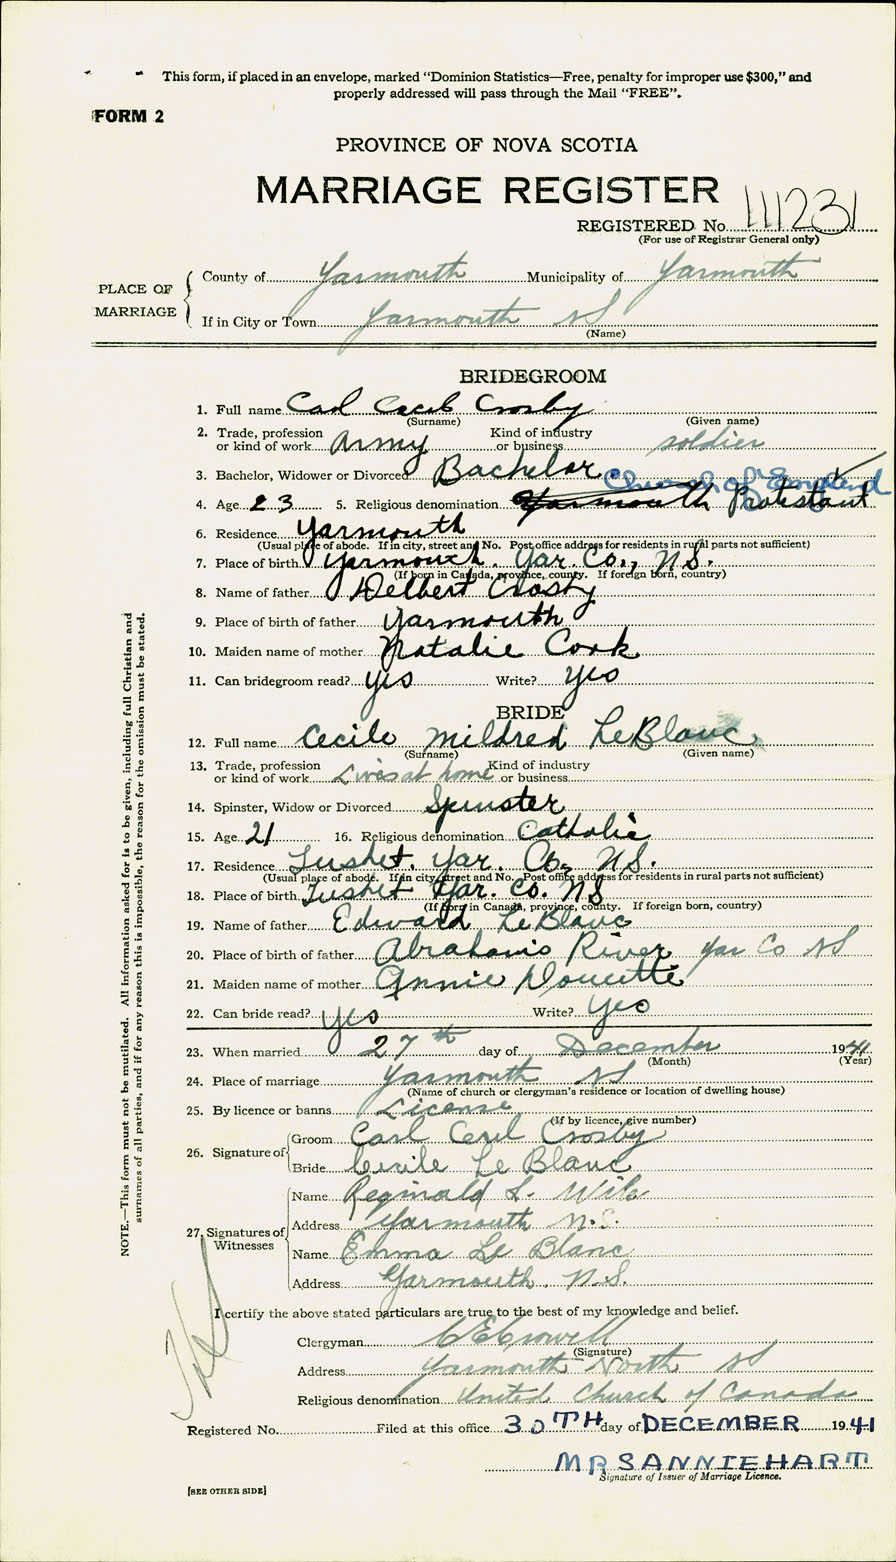 This form, if placed in an envelope, marked "Dominion Statistics—Free, penalty for improper use $300," and
properly addressed will pass through the Mail "FREE".
FORM 2
PROVINCE OF NOVA SCOTIA
MARRIAGE REGISTER
REGISTERED No. 111231
(For use of Registrar General only)
PLACE OF MARRIAGE
County of Yarmouth Municipality of Yarmouth
If in City or Town Yarmouth NS
(Name)
BRIDEGROOM
1. Full name Carl Cecil Crosby
(Surname) (Given name)
2. Trade, profession or kind of work Army Kind of industry or business soldier
3. Bachelor, Widower or Divorced Bachelor Church of England
4. Age 23 5. Religious denomination Yarmouth Protestant
6. Residence Yarmouth
(Usual place of abode. If in city, street and No. Post office address for residents in rural parts not sufficient)
7. Place of birth Yarmouth. Yar. Co., N.S.
(If born in Canada, province, county. If foreign born, country)
8. Name of father Delbert Crosby
9. Place of birth of father Yarmouth
10. Maiden name of mother Natalie Cook
11. Can bridegroom read? yes Write? yes
BRIDE
12. Full name Cecile Mildred LeBlanc
(Surname) (Given name)
13. Trade, profession or kind of work Lives at home Kind of industry or business
14. Spinster, Widow or Divorced Spinster
15. Age 21 16. Religious denomination Catholic
17. Residence Tusket. Yar. Co, N.S.
(Usual place of abode. If in city, street and No. Post office address for residents in rural parts not sufficient)
18. Place of birth Tusket Yar. Co. NS
(If born in Canada, province, county. If foreign born, country)
19. Name of father Edward LeBlanc
20. Place of birth of father Abrahams River Yar Co NS
21. Maiden name of mother Annie Doucette
22. Can bride read? yes Write? yes
23. When married 27th day of December 1941
(Month) (Year)
24. Place of marriage Yarmouth NS
(Name of church or clergyman's residence or location of dwelling house)
25. By licence or banns License
(If by licence, give number)
26. Signature of
Groom Carl Cecil Crosby
Bride Cecile Le Blanc
27. Signatures of Witnesses
Name Reginald L.
Address Yarmouth N.S.
Name Emma Le Blanc
Address Yarmouth. N.S.
I certify the above stated particulars are true to the best of my knowledge and belief.
Clergyman C E Crowell
(Signature)
Address Yarmouth North NS
Religious denomination United Church of Canada
Registered No. Filed at this office 30TH day of DECEMBER 1941
MRS ANNIE HART
Signature of Issuer of Marriage Licence.
[SEE OTHER SIDE]
NOTE.—This form must not be mutilated. All information asked for is to be given, including full Christian and
surnames of all parties, and if for any reason this is impossible, the reason for the omission must be stated.